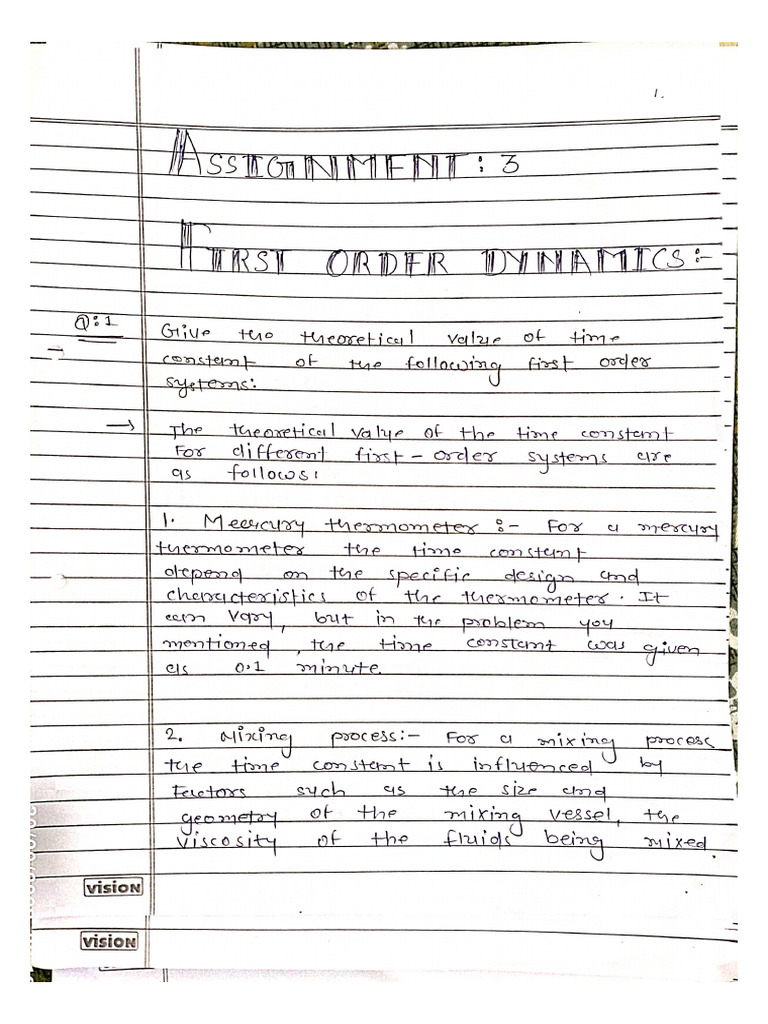 1.
ASSIGNMENT: 3
FIRST ORDER DYNAMICS:-
Q:1
Give the theoretical value of time
constant of the following first order
systems:
→ The theoretical value of the time constant
For different first-order systems are
as follows:
1. Mercury thermometer :- For a mercury
thermometer the time constant
depend on the specific design and
characteristics of the thermometer. It
can vary, but in the problem you
mentioned, the time constant was given
as 0.1 minute.
2. Mixing process:- For a mixing process
the time constant is influenced by
Factors such as the size and
geometry of the mixing vessel, the
viscosity of the fluids being mixed
vision
vision